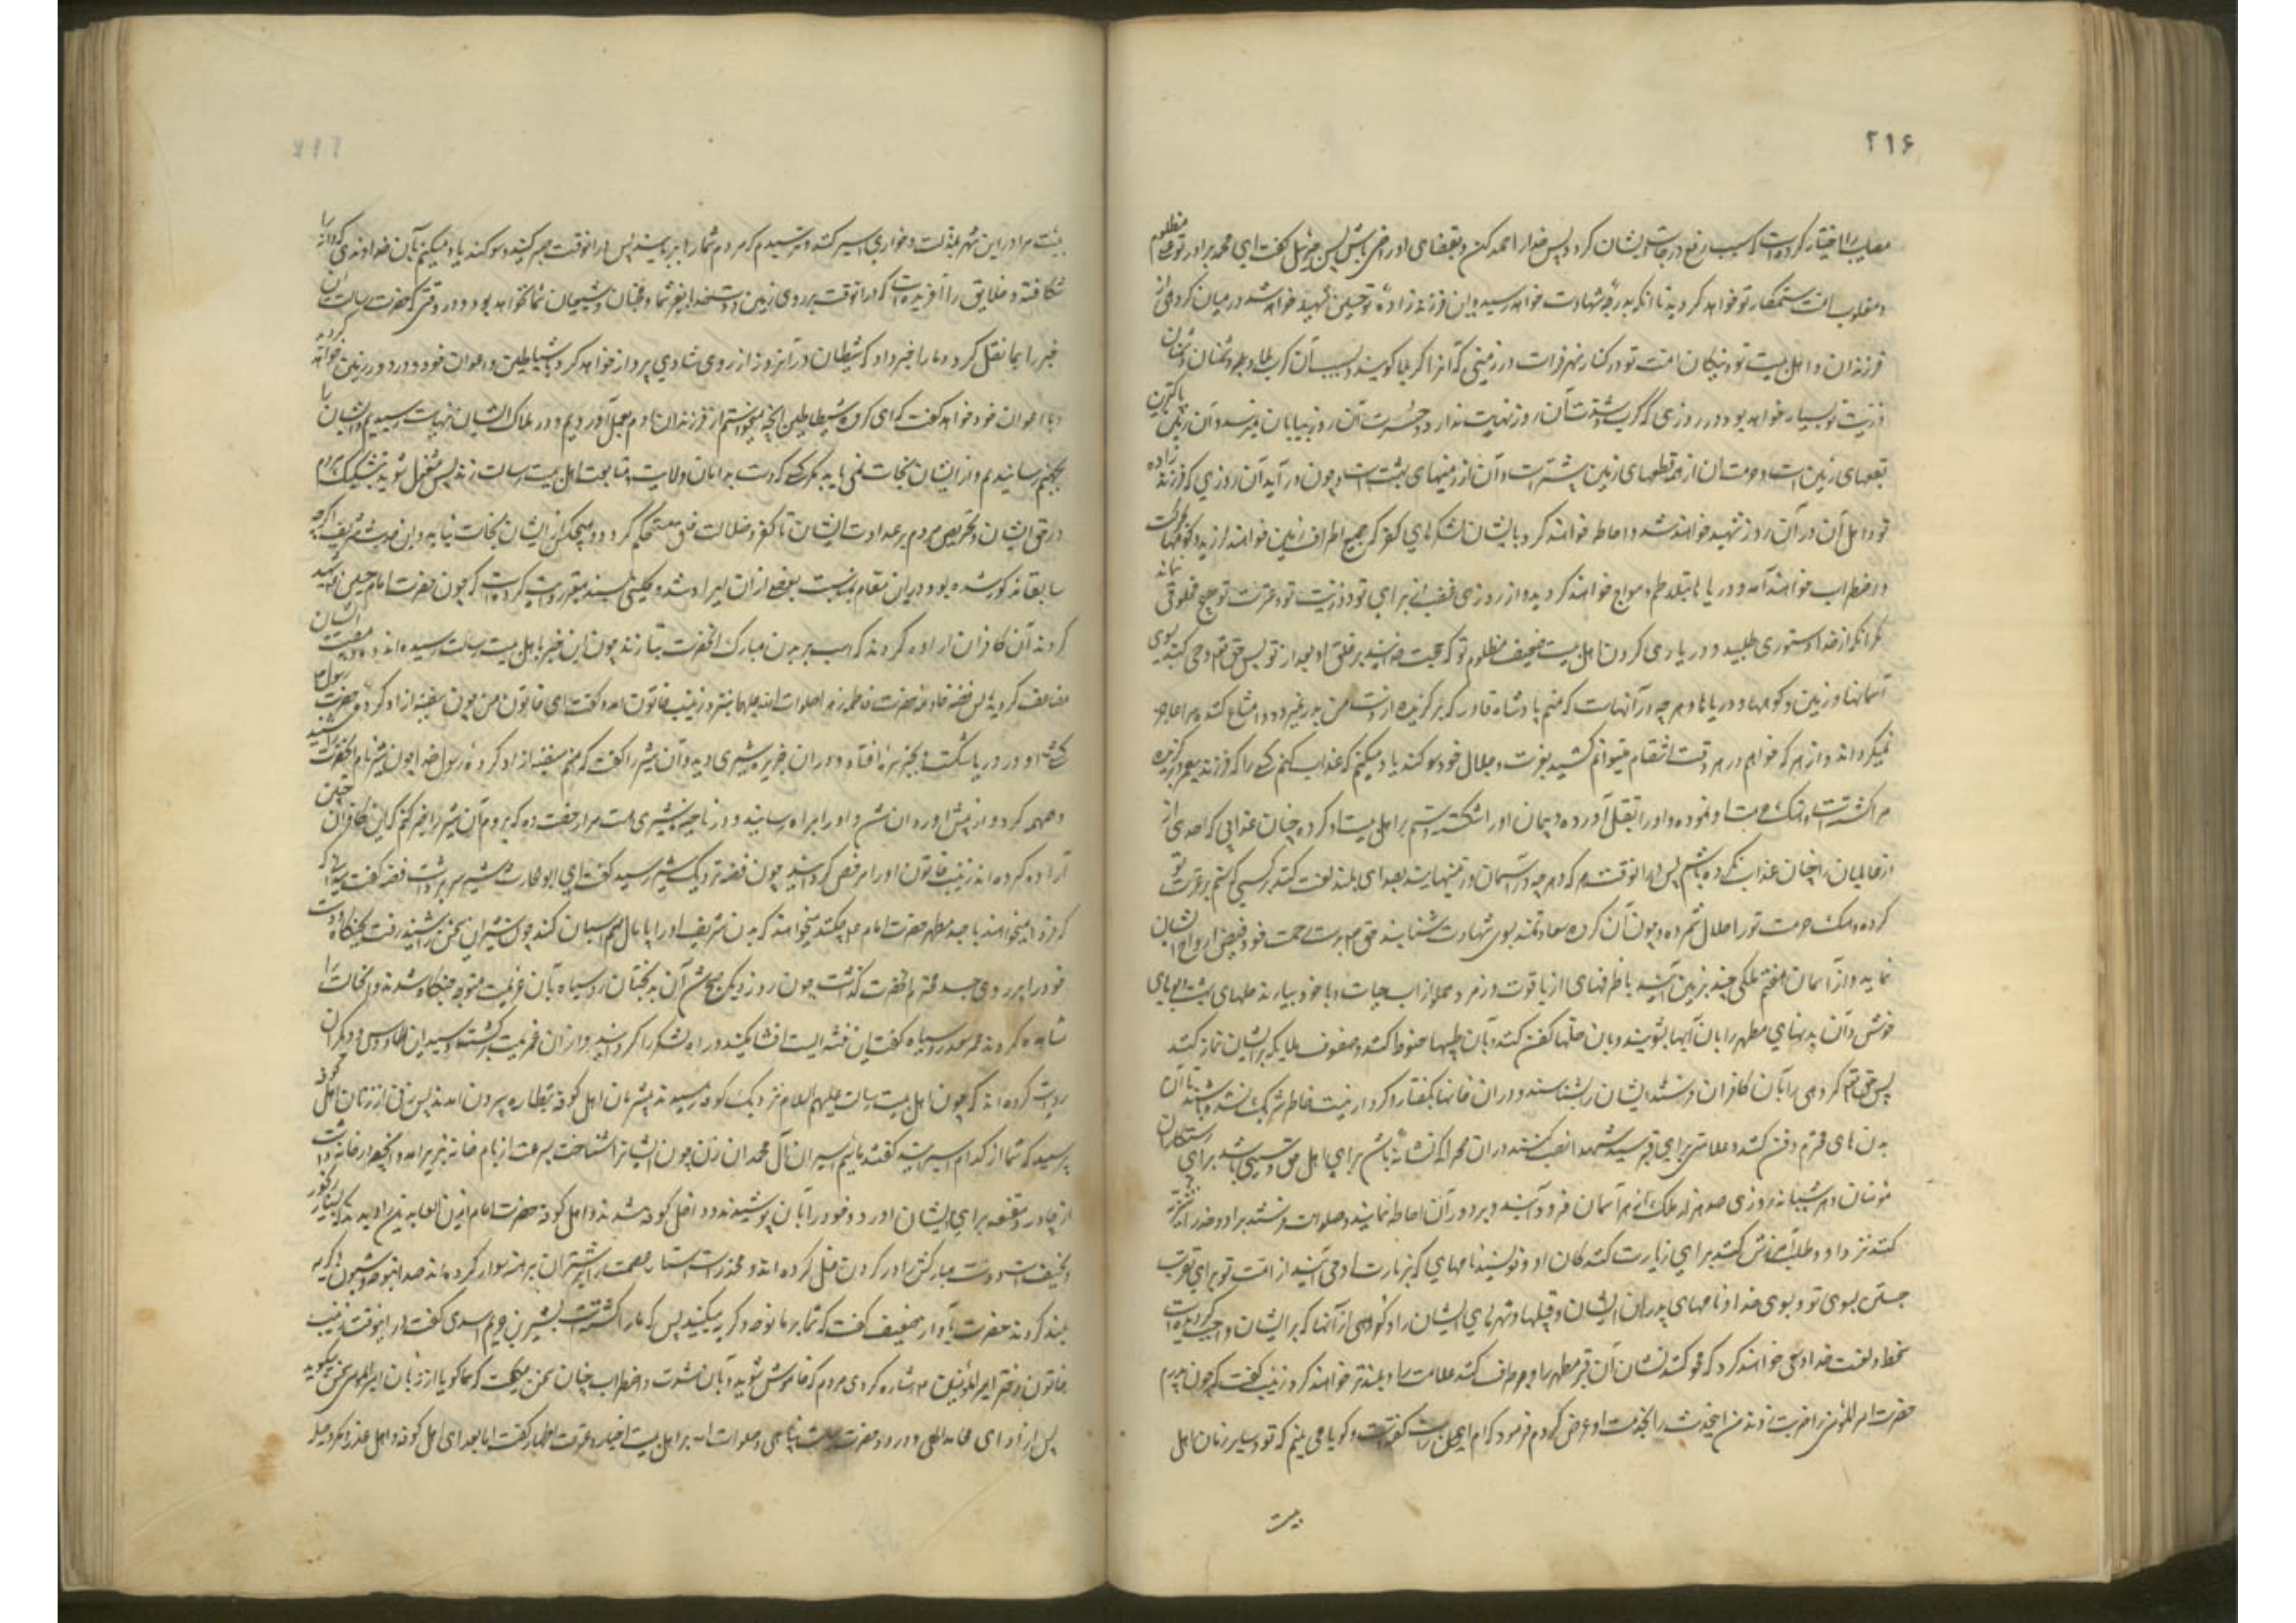 ۲۱۶
مصایب را اختیار کرده است که سبب رفع درجات ایشان کردد پس خدا را حمد کن و بقضای او راضی باش پس جبرئیل کفت ای محمد برادر تو علی مظلوم
و مغلوب امت ستمکار تو خواهد کردید تا آنکه بدرجه شهادت خواهد رسید و این فرزند زاده تو حسین شهید خواهد شد در میان کروهی از
فرزندان و اهل بیت تو و نیکان امت تو در کنار نهر فرات در زمینی که آنرا کربلا کویند و بسبب آن کرب و بلا بر دشمنان تو و دشمنان
ذریت تو بسیار خواهد بود در روزی که کرب و شدت آن روز نهایت ندارد و حسرت آن روز بپایان نمیرسد و آن زمین پاکترین
بقعهای زمین است و حرمت آن از همه قطعهای زمین بیشتر است و آن از زمینهای بهشت است و چون در آید آن روزی که فرزند زاده
تو و اهل آن در آن روز شهید خواهند شد و احاطه خواهند کرد بایشان لشکرهای کفر که جمیع اطراف زمین خواهند لرزید و کوهها بحرکت
و اضطراب خواهند آمد و دریاها بتلاطم و مواج خواهند کردید از روی غضب از برای تو و ذریت تو و عترت تو و هیچ مخلوقی نماند
مکر آنکه از خدا دستوری طلبید در یاری کردن اهل بیت ضعیف مظلوم تو که حجت خدایند بر خلق او بعد از تو پس حق تعالی وحی کند بسوی
آسمانها و زمین و کوهها و دریاها و هر چه در آنهاست که منم پادشاه قادر که کریزنده از دست من بدر نمیرود و امتناع کننده مرا عاجز
نمیکرداند و از هر که خواهم در هر وقت انتقام میتوانم کشید بعزت و جلال خود سوکند یاد میکنم که عذاب کنم کسی را که فرزند پیغمبر برکزیده
مرا کشته است و هتک حرمت او نموده و او را بقتل آورده و پیمان او را شکسته و ستم بر اهل بیت او کرده چنان عذابی که احدی از
از عالمیان را چنان عذاب نکرده باشم پس در آنوقت هر که و هر چه در آسمان و زمینهاست بصدای بلند لعنت کنند بر کسی که ستم بر عترت تو
کرده و هتک حرمت تو را حلال شمرده و چون آن کروه سعادتمند بسوی شهادت شتابند حق تعالی بدست رحمت خود قبض ارواح ایشان
نماید و از آسمان هفتم ملکی چند بزمین آیند با ظرفهای از یاقوت و زمرد مملو از آب حیات و با خود بیارند حلهای بهشت و بوهای
خوش و آن بدنهای مطهر را بان آبها بشویند و بان حلها کفن کنند و بان طیبها حنوط کنند و صفوف ملایکه بر ایشان نماز کنند
پس حق تعالی کروهی را که آن کافران ایشان را نشناسند و در آن خونها بکفتار و کردار و نیت و خاطر شریک نشده باشند تا آن
بدنهای محترم دفن کنند و علامتی برای قبر سید شهدا نصب کنند در آن صحرا که نشانه باشد برای اهل حق و سببی باشد برای رستکاری
مؤمنان و هر شبانه روزی صد هزار ملک از هر آسمان فرود آیند و بر دور آن احاطه نمایند و صلوات فرستند بر او و خدا را تنزیه
کنند نزد او و طلب آمرزش کنند برای زیارت کنندکان او و نویسند نامهای که بزیارت او می آیند از امت تو برای تقرب
جستن بسوی تو و بسوی خدا و نامهای پدران ایشان و قبیلها و شهرهای ایشان را و کروهی از آنها که بر ایشان واجب کردیده است
سخط و لعنت خدا سعی خواهند کرد که محو کنند نشان آن قبر مطهر را و بر طرف کنند علامت را و بلندتر خواهند کرد زینب کفت که چون پدرم
حضرت امیر المؤمنین را ضربت زدند من این حدیث را بخدمت او عرض کردم فرمود که ام ایمن راست کفته است و کویا می بینم که تو و سایر زنان اهل
بیت
بیت مرا در این شهر بمذلت و خواری اسیر کنند و ترسیدم که مردم شما را بربایند پس در انوقت صبر کنید سوکند یاد میکنم بآن خداوندی که دانه را
شکافته و خلایق را آفریده است که در انوقت بر روی زمین دوست خدا بغیر شما و محبان و شیعیان شما نخواهد بود و در وقتی که حضرت رسالت این
خبر را بما نقل کرد و ما را خبر داد که شیطان در آنروز از روی شادی پرواز خواهد کرد با شیاطین و اعوان خود و در دور زمین خواهد کردید
و با اعوان خود خواهد کفت که ای کروه شیاطین آنچه میخواستم از فرزندان آدم بعمل آوردیم و در هلاک ایشان نهایت رسیدیم و ایشان را
بجهنم رسانیدیم و از ایشان نجات نمی یابد مکر کسی که دست بدامان ولایت و متابعت اهل بیت رسالت زند پس مشغول شوید بتشکیک مردم
در حق ایشان و تحریص مردم بر عداوت ایشان تا کفر و ضلالت خلق مستحکم کردد و هیچکس از ایشان نجات نیابد و این حدیث شریف اکرچه
سابقا مذکور شده بود در این مقام بمناسبت بعضی از آن ایراد شد و کلینی بسند معتبر روایت کرده است که چون حضرت امام حسین را شهید
کردند آن کافران اراده کردند که اسب بر بدن مبارک آنحضرت بتازند چون این خبر باهل بیت رسالت رسید اندوه و مصیبت ایشان
مضاعف کردید پس فضه خادمه حضرت فاطمه زهرا صلوات الله علیها بنزد زینب خاتون آمد و کفت ای خاتون من چون سفینه آزاد کرده حضرت رسول
کشتی او در دریا شکست و بجزیره افتاد و در آن جزیره شیری دید و آن شیر را کفت که منم سفینه آزاد کرده رسول خدا چون شیر نام آنحضرت را شنید
همهمه کرد و از پیش او روان شد و او را براه رسانید و در ناحیه شیری هست مرا رخصت ده که بروم آن شیر را خبر کنم که این کافران چنین
اراده کرده اند زینب خاتون او را مرخص کردانید چون فضه نزدیک شیر رسید کفت ای ابو الحارث شیر سر برداشت فضه کفت میدانی که
که فردا میخواهند با جسد مطهر حضرت امام حسین چکنند میخواهند که بدن شریف او را پایمال سم اسبان کنند چون شیر این سخن را شنید رفت بجنکاه و دست
خود را بر روی جسد محترم آنحضرت کذاشت چون روز دیکر صبح شد آن بدبختان رو سیاه بآن عزیمت متوجه جنکاه شدند و آن حالت را
مشاهده کردند عمر سعد رو سیاه کفت این فتنه ایست افشا مکنید و راه لشکر را کردانید و از آن عزیمت برکشتند و سید ابن طاوس و دیکران
روایت کرده اند که چون اهل بیت رسالت علیهم السلام نزدیک کوفه رسیدند بیشرمان اهل کوفه بنظاره بیرون آمدند پس زنی از زنان اهل کوفه
پرسید که شما از کدام اسیرانید کفتند مائیم اسیران آل محمد آن زن چون ایشانرا شناخت بسرعت از بام خانه بزیر آمد و آنچه در خانه داشت
از چادر و مقنعه برای ایشان آورد و خود را بآن پوشیدند و داخل کوفه شدند و اهل کوفه حضرت امام زین العابدین را دیدند که بسیار رنجور
و نحیف است و دست مبارکش را در کردن غل کرده اند و مخدرات استار عصمت را بر شتران برهنه سوار کرده اند صدا بنوحه و شیون و کریه
بلند کردند حضرت بآواز ضعیف کفت که شما بر ما نوحه و کریه میکنید پس که ما را کشته است بشیر بن حزیم اسدی کفت در انوقت زینب
خاتون دختر امیر المؤمنین اشاره کرد بسوی مردم که خاموش شوید و بآن شدت و اضطراب چنان سخن میکفت که کویا از زبان امیر المؤمنین سخن میکوید
پس از ادای محامد الهی و درود حضرت رسالت پناهی و صلوات بر اهل بیت اخیار و عترت اطهار کفت اما بعد ای اهل کوفه و اهل غدر و مکر و حیله